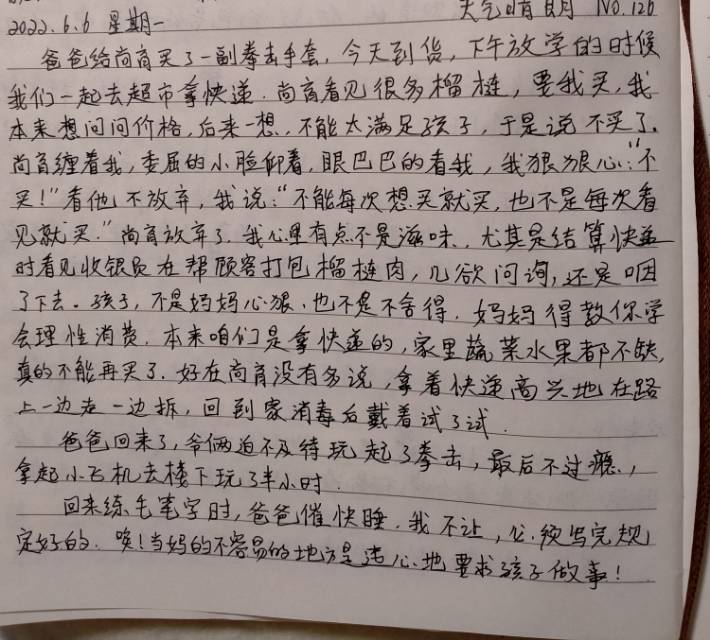 2022.6.6 星期一 天气晴朗 No.126
爸爸给尚育买了一副拳击手套，今天到货，下午放学的时候
我们一起去超市拿快递．尚育看见很多榴梿，要我买，我
本来想问问价格，后来一想，不能太满足孩子，于是说不买了．
尚育缠着我，委屈的小脸仰着，眼巴巴的看我，我狠狠心："不
买！"看他不放弃，我说："不能每次想买就买，也不是每次看
见就买．"尚育放弃了．我心里有点不是滋味．尤其是结算快递
时看见收银员在帮顾客打包榴梿肉，几欲问询，还是咽
了下去。孩子，不是妈妈心狠，也不是不舍得．妈妈得教你学
会理性消费．本来咱们是拿快递的，家里蔬菜水果都不缺，
真的不能再买了．好在尚育没有多说，拿着快递高兴地在路
上一边走一边拆，回到家消毒后戴着试了试．
爸爸回来了，爷俩迫不及待玩起了拳击，最后不过瘾，
拿起小飞机去楼下玩了半小时．
回来练毛笔字时，爸爸催快睡．我不让，必须写完规
定好的．唉！当妈的不容易的地方是违心地要求孩子做事！